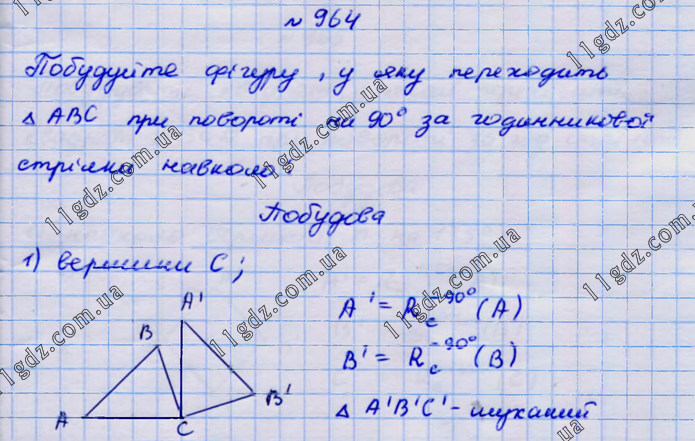 № 964
Побудуйте фігуру, у яку переходить
△ ABC при повороті на 90° за годинниковой
стрілка навколо:
Побудова
1) вершини C;
A' = R_C^{-90°} (A)
B' = R_C^{-90°} (B)
△ A'B'C' - шуканий
A'
B
B'
A
C
11gdz.com.ua
11gdz.com.ua
11gdz.com.ua
11gdz.com.ua
11gdz.com.ua
11gdz.com.ua
11gdz.com.ua
11gdz.com.ua